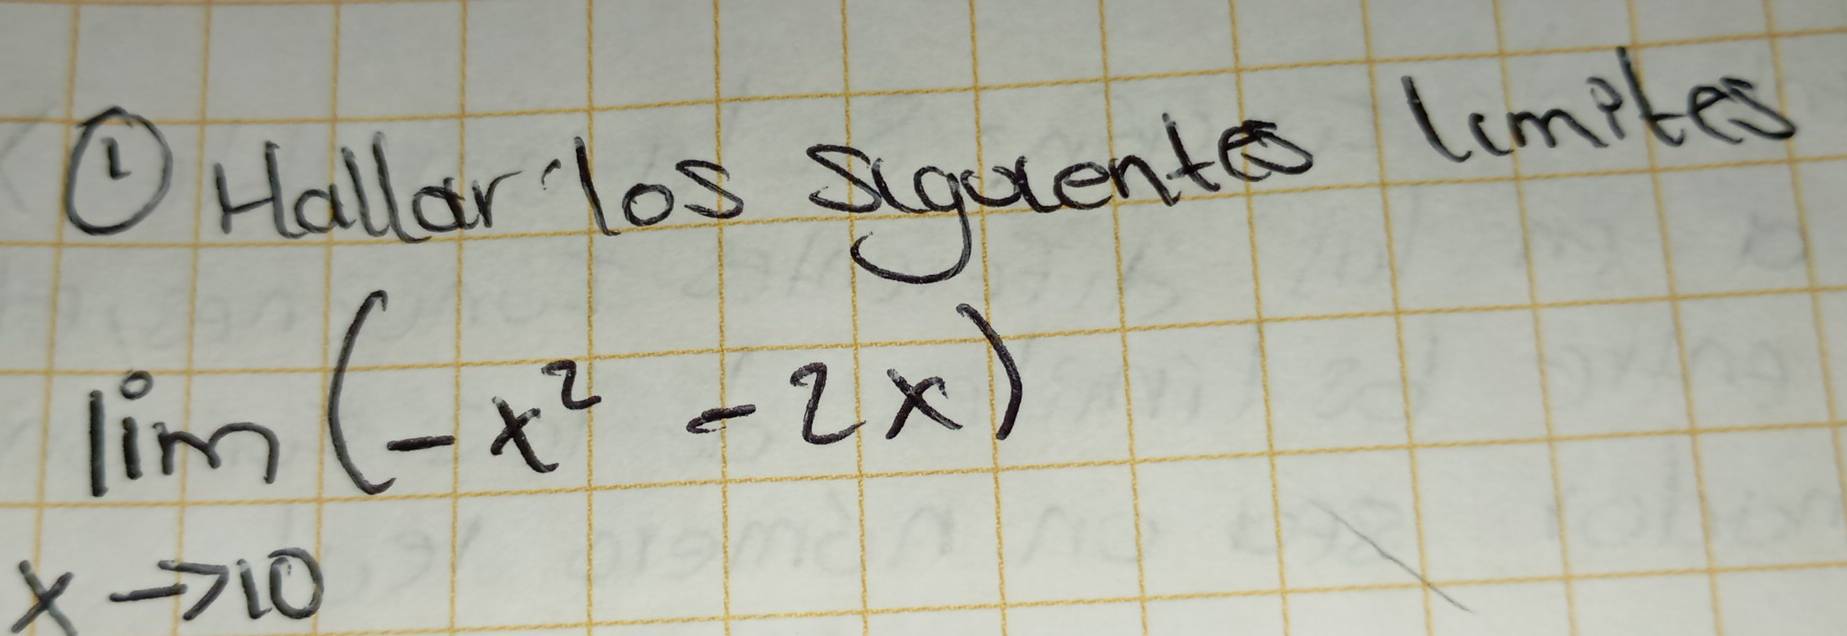 ① Hallar los siguientes limites
lim (-x² - 2x)
x → 10